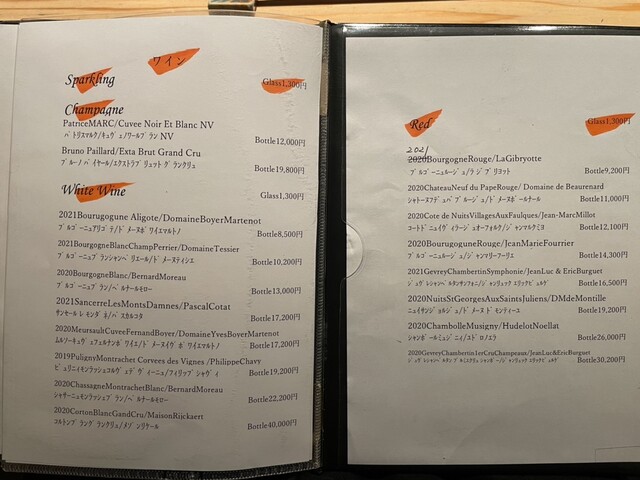 ワイン
Sparkling Glass1,300円
Champagne
PatriceMARC/Cuvee Noir Et Blanc NV
パトリスマルク/キュヴェノワールブラン NV Bottle12,000円
Bruno Paillard/Exta Brut Grand Cru
ブルーノパイヤール/エクストラブリュットグランクリュ Bottle19,800円
White Wine Glass1,300円
2021Bourugogune Aligote/DomaineBoyerMartenot
ブルゴーニュアリゴテ/ドメーヌボワイエマルトノ Bottle8,500円
2021BourgogneBlancChampPerrier/DomaineTessier
ブルゴーニュブランシャンペリエール/ドメーヌテシエ Bottle10,200円
2020BourgogneBlanc/BernardMoreau
ブルゴーニュブラン/ベルナールモロー Bottle13,000円
2021SancerreLesMontsDamnes/PascalCotat
サンセールレモンダネ/パスカルコタ Bottle17,200円
2020MeursaultCuveeFernandBoyer/DomaineYvesBoyerMartenot
Bottle17,200円
2019PulignyMontrachet Corvees des Vignes /PhilippeChavy
Bottle19,200円
2020ChassagneMontrachetBlanc/BernardMoreau
シャサーニュモンラッシェブラン/ベルナールモロー Bottle22,200円
2020CortonBlancGandCru/MaisonRijckaert
コルトンブラングランクリュ/メゾンリケール Bottle40,000円
Red Glass1,300円
2021
2020BourgogneRouge/LaGibryotte
ブルゴーニュルージュ/ラジブリヨット Bottle9,200円
2020ChateauNeuf du PapeRouge/ Domaine de Beaurenard
シャトーヌフデュパプルージュ/ドメーヌボールナール Bottle11,000円
2020Cote de NuitsVillagesAuxFaulques/Jean-MarcMillot
コートドニュイヴィラージュオーフォルク/ジャンマルクミヨ Bottle12,100円
2020BourougoguneRouge/JeanMarieFourrier
ブルゴーニュルージュ/ジャンマリーフーリエ Bottle14,300円
2021GevreyChambertinSymphonie/JeanLuc & EricBurguet
Bottle16,500円
2020NuitsStGeorgesAuxSaintsJuliens/DMdeMontille
ニュイサンジョルジュ/ドメーヌドモンティーユ Bottle19,200円
2020ChambolleMusigny/HudelotNoellat
シャンボールミュジニィ/ユドロノエラ Bottle26,000円
2020GevreyChambertin1erCruChampeaux/JeanLuc&EricBurguet
Bottle30,200円